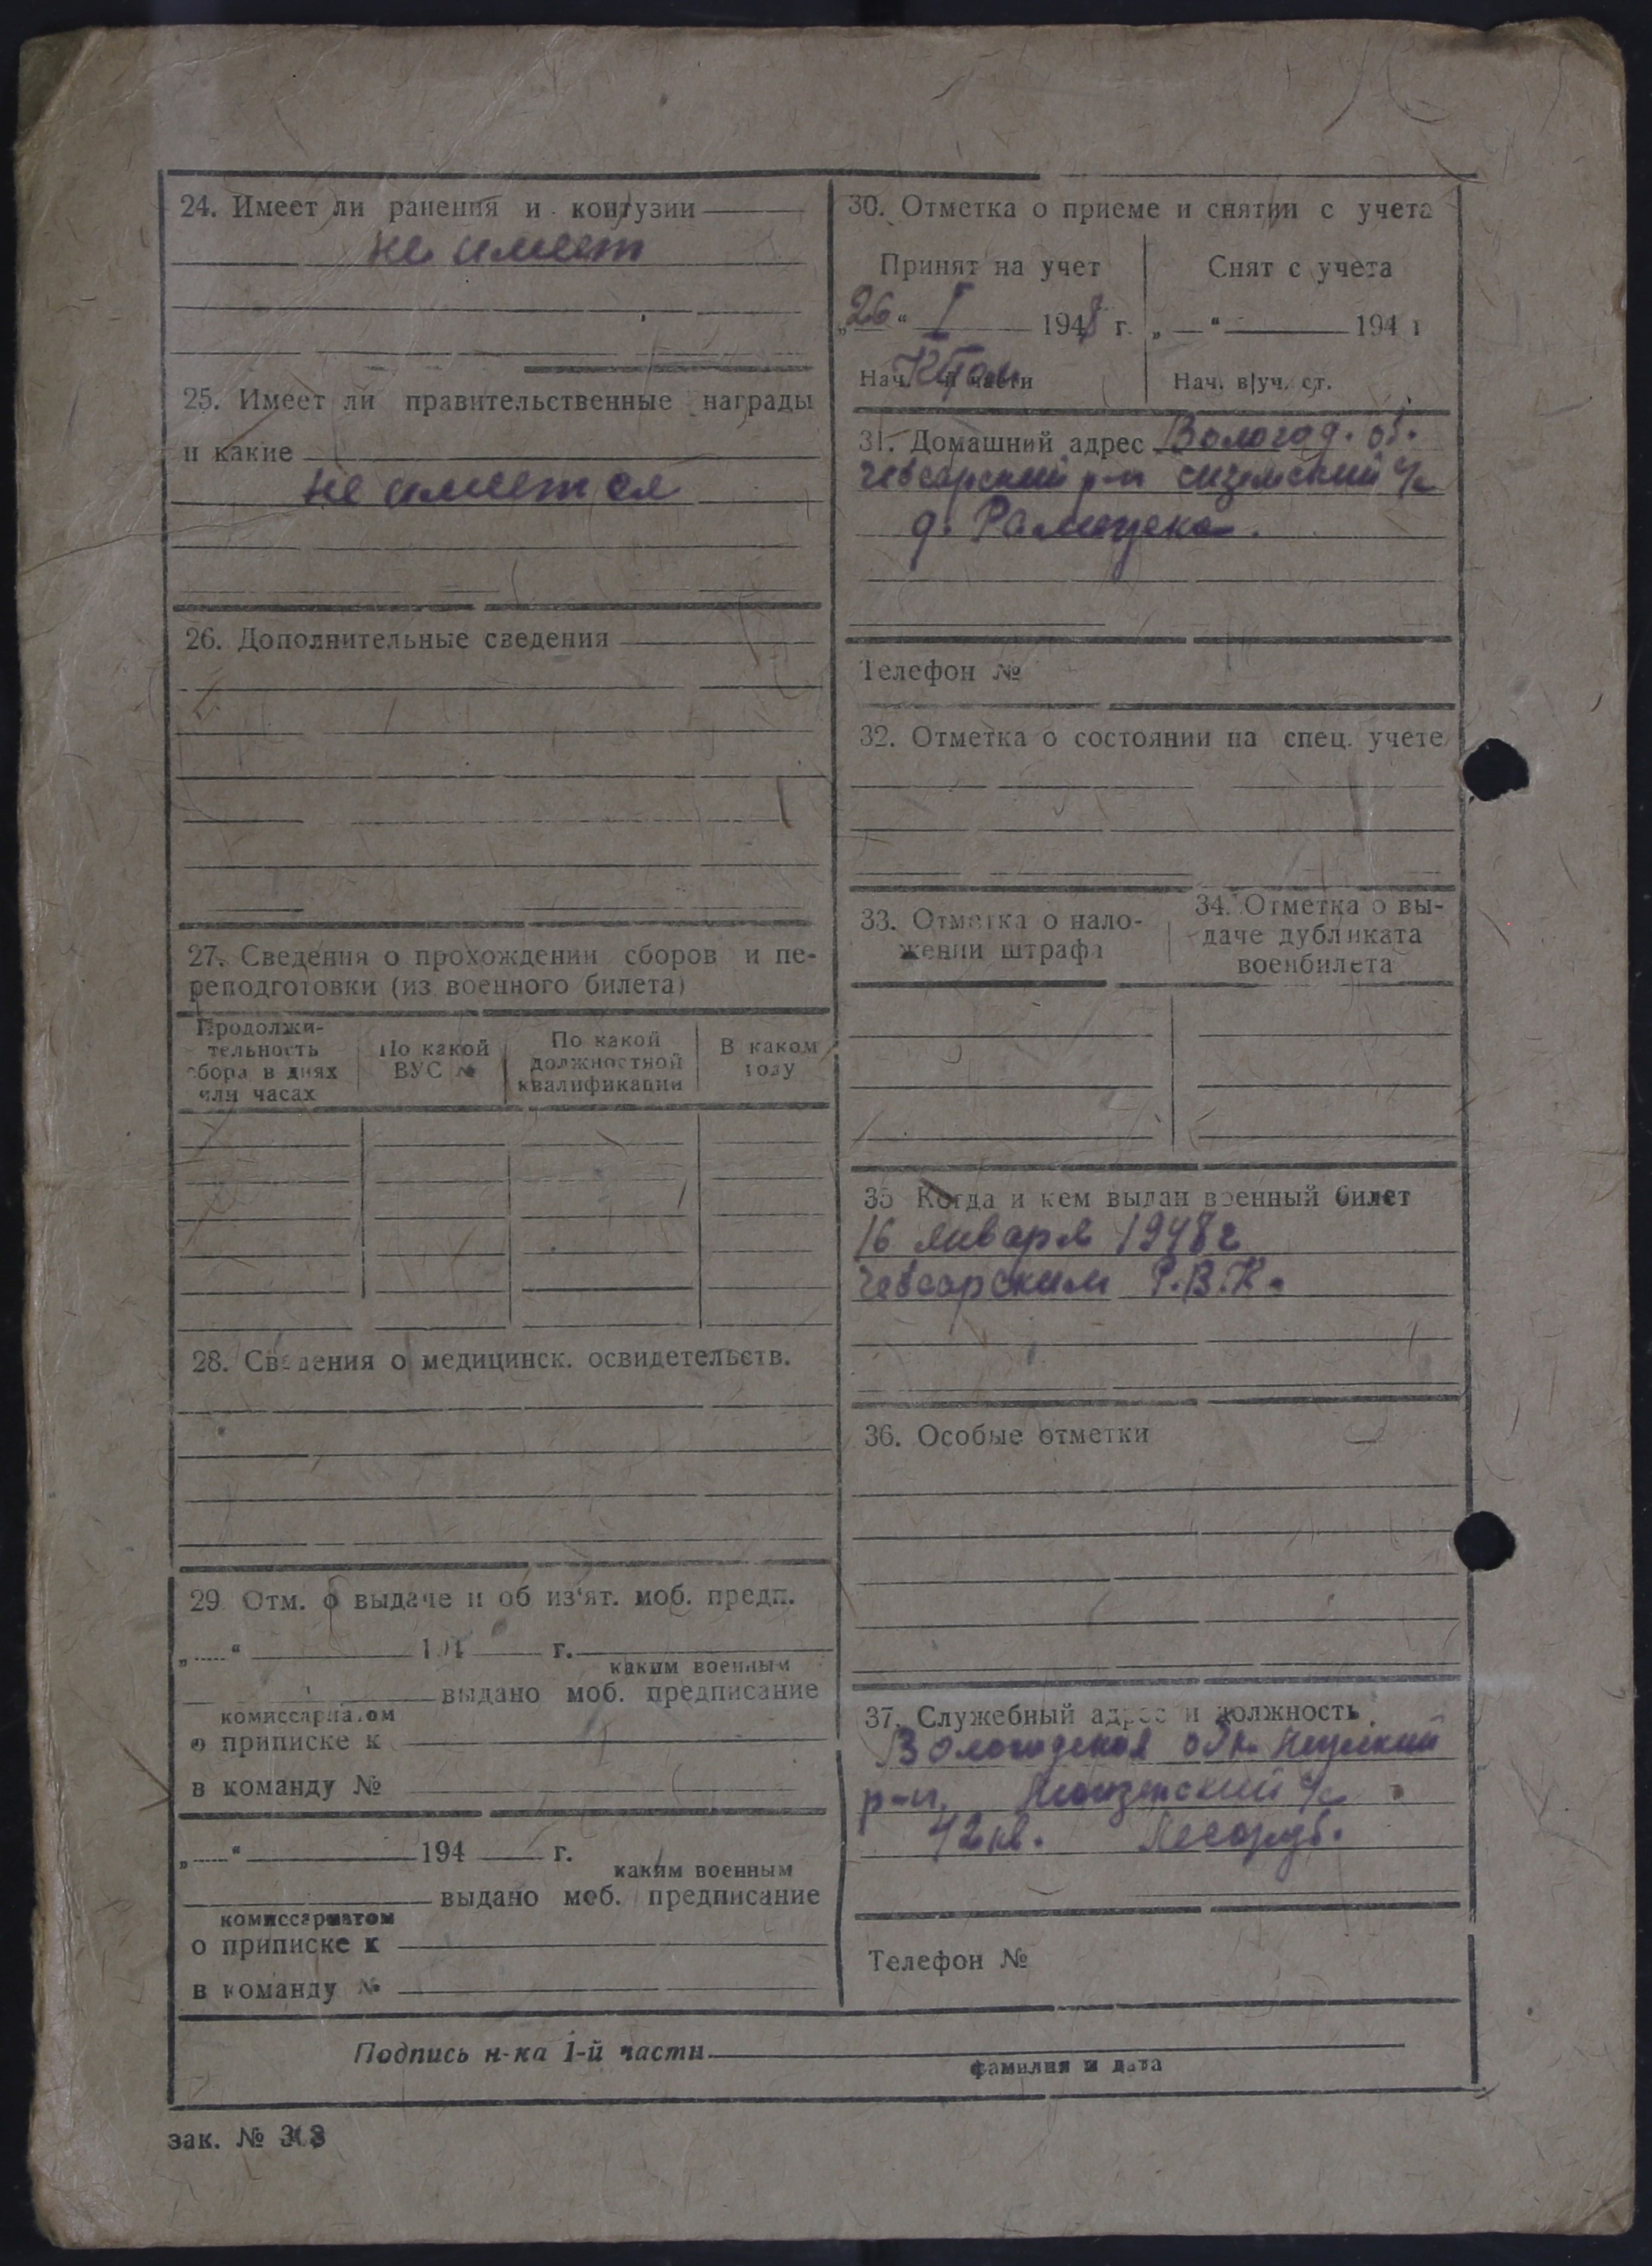 24. Имеет ли ранения и контузии
не имеет
25. Имеет ли правительственные награды
и какие
не имеется
26. Дополнительные сведения
27. Сведения о прохождении сборов и пе-
реподготовки (из военного билета)
Продолжи-
тельность
сбора в днях
или часах
По какой
ВУС №
По какой
должностной
квалификации
В каком
году
28. Сведения о медицинск. освидетельств.
29. Отм. о выдаче и об из'ят. моб. предп.
„ “ 194 г.
каким военным
выдано моб. предписание
комиссариатом
о приписке к
в команду №
„ “ 194 г.
каким военным
выдано моб. предписание
комиссариатом
о приписке к
в команду №
30. Отметка о приеме и снятии с учета
Принят на учет
„26“ I 1948 г.
Нач. части
Снят с учета
„ “ 194 г
Нач. в|уч. ст.
31. Домашний адрес Вологод. об.
Чебсарский р-н Сиземский с/с
д.
Телефон №
32. Отметка о состоянии на спец. учете
33. Отметка о нало-
жении штрафа
34. Отметка о вы-
даче дубликата
военбилета
35 Когда и кем выдан военный билет
16 января 1948 г
Чебсарским Р.В.К.
36. Особые отметки
37. Служебный адрес и должность
Вологодская обл.
р-н, с/с
42 кв. Лесоруб.
Телефон №
Подпись н-ка 1-й части
фамилия и дата
зак. № 303